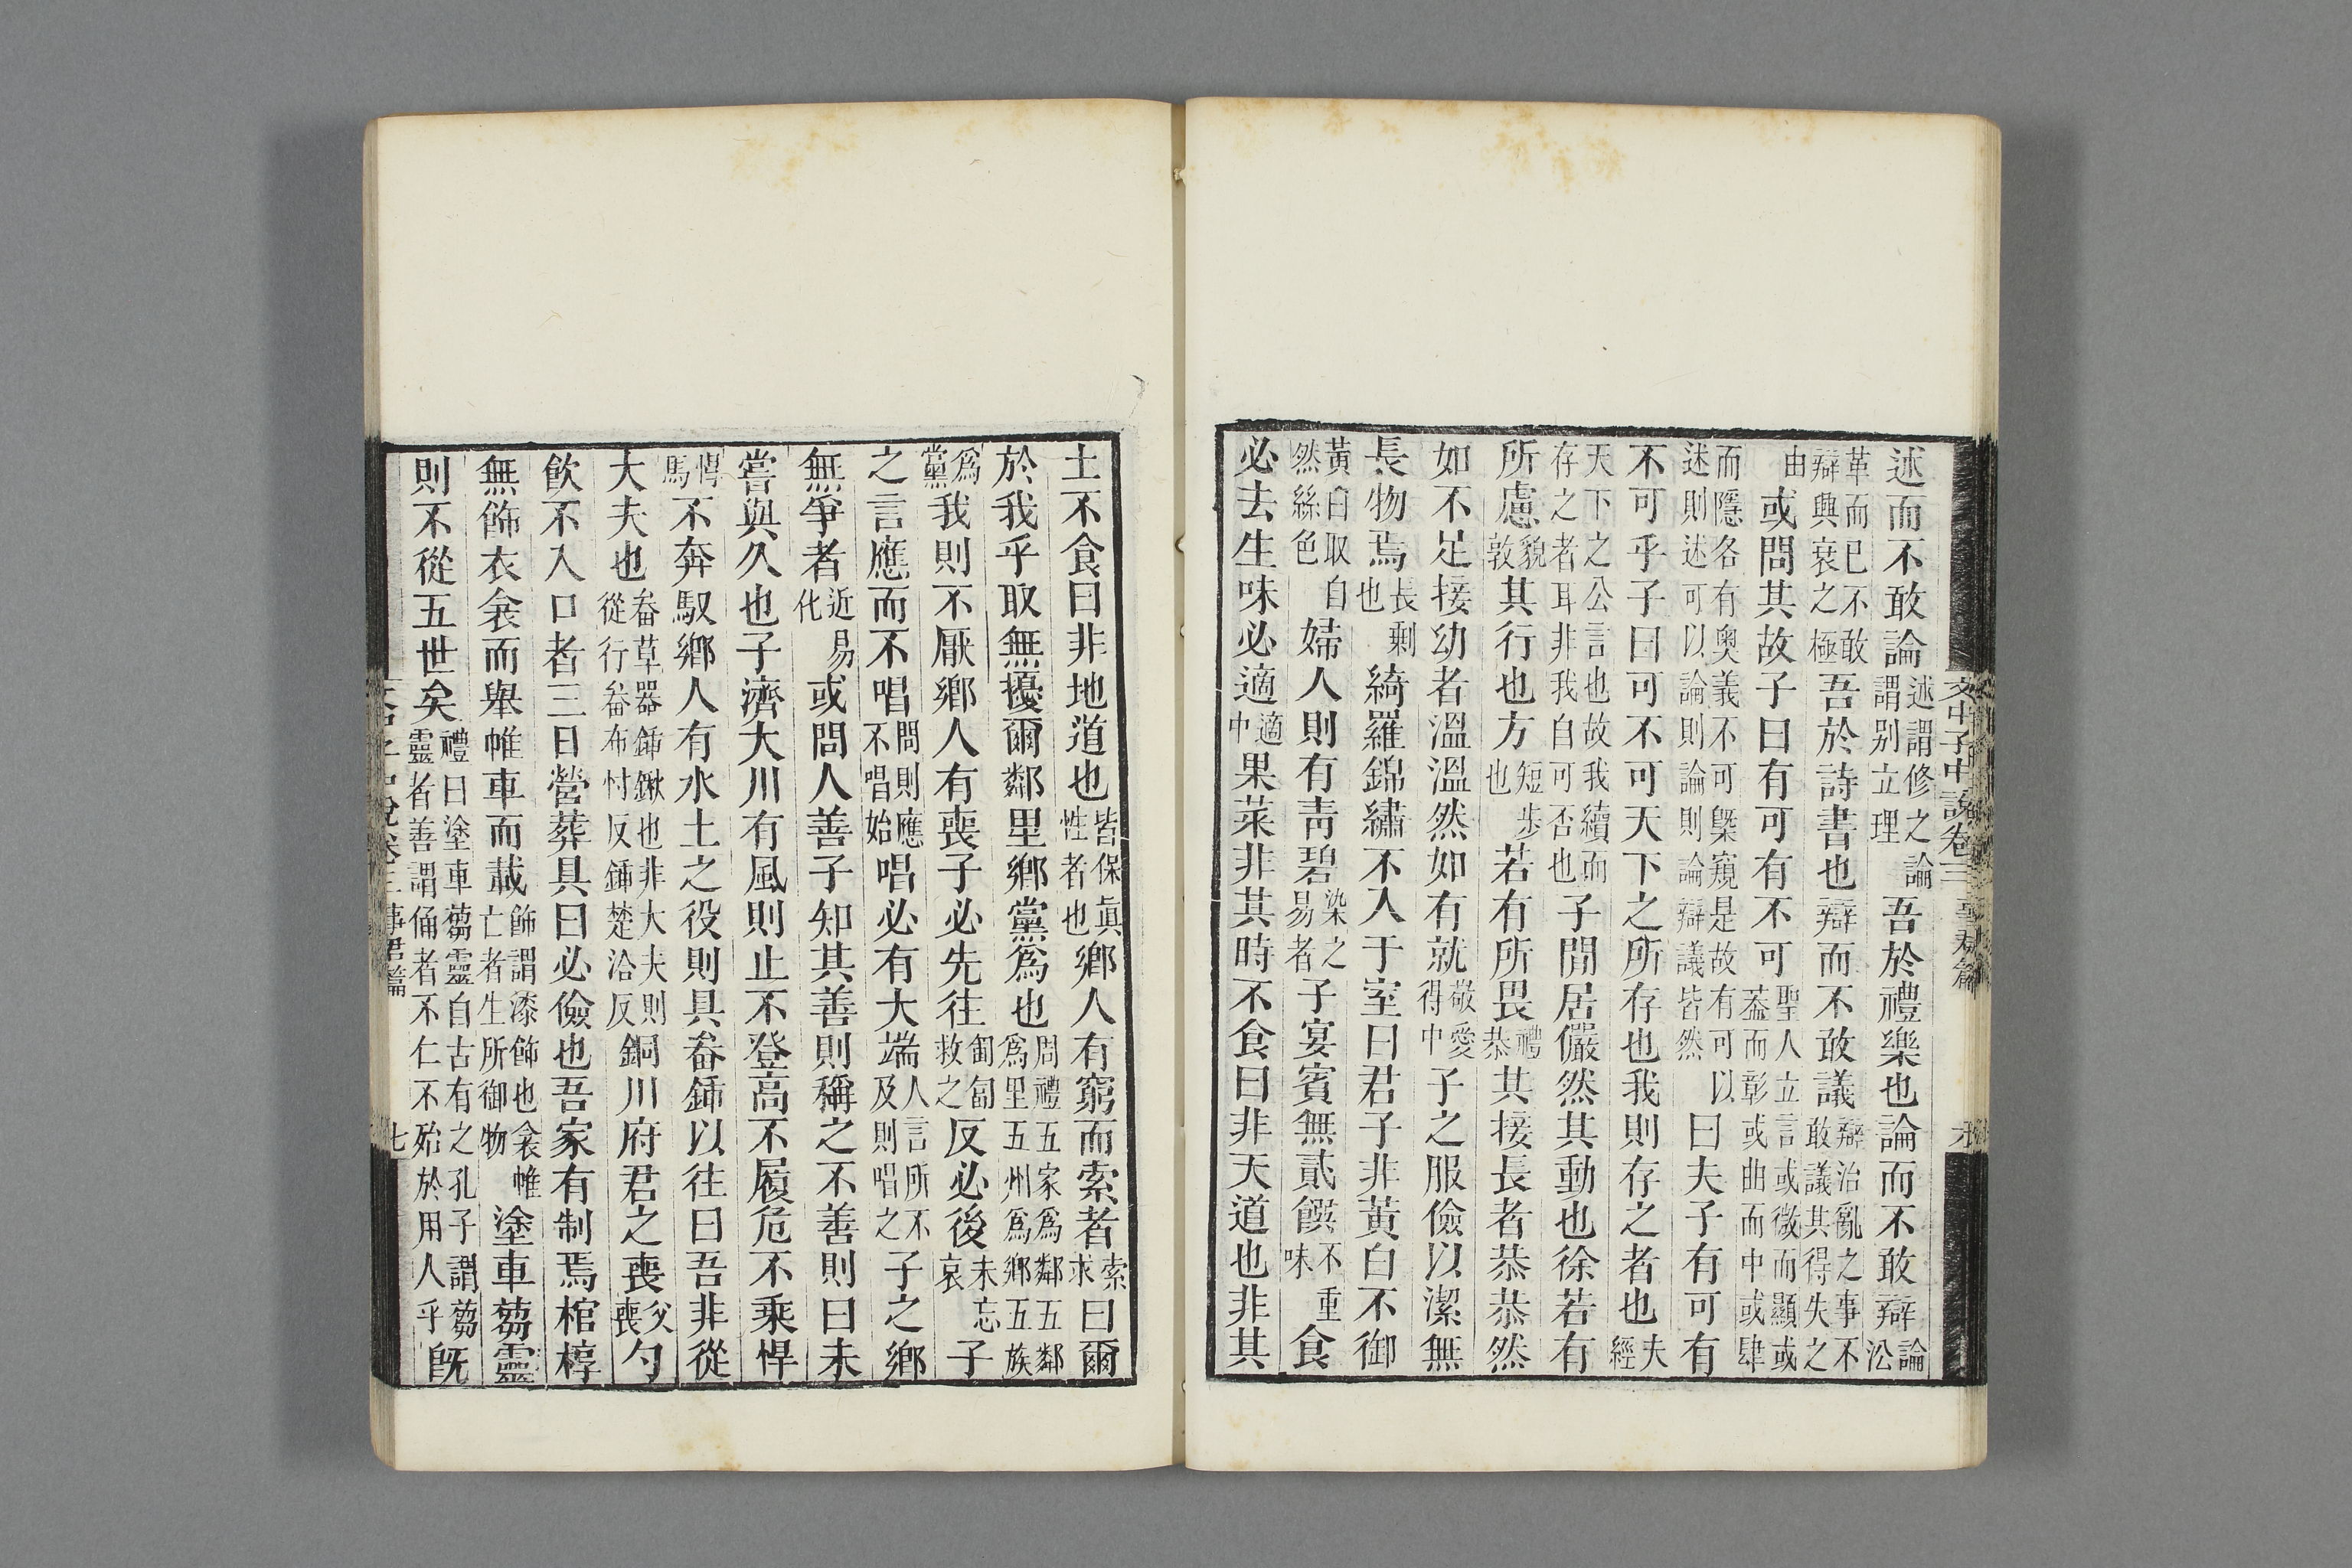 述而不敢論述謂修之論謂别立理吾於禮樂也論而不敢辯論㳂
革而已不敢辯興衰之極吾於詩書也辯而不敢議辯治亂之事不敢議其得失之
由或問其故子曰有可有不可聖人立言或微而顯或葢而彰或曲而中或肆
而隱各有奧義不可槩窺是故有可以述則述可以論則論則論辯議皆然曰夫子有可有
不可乎子曰可不可天下之所存也我則存之者也夫經
天下之公言也故我續而存之者耳非我自可否也子閒居儼然其動也徐若有
所慮貌敦其行也方短步也若有所畏禮恭其接長者恭恭然
如不足接幼者溫溫然如有就敬愛得中子之服儉以潔無
長物焉長剩也綺羅錦繡不入于室曰君子非黃白不御
黃白取自然絲色婦人則有靑碧染之易者子宴賓無貳饌不重味食
必去生味必適適中果菜非其時不食曰非天道也非其
文中子中說卷三
事君篇
土不食曰非地道也皆保眞性者也鄉人有窮而索者索求曰爾
於我乎取無擾爾鄰里鄉黨爲也周禮五家爲鄰五鄰爲里五州爲鄉五族
爲黨我則不厭鄉人有喪子必先往匍匐救之反必後未忘哀子
之言應而不唱問則應不唱始唱必有大端人言所不及則唱之子之鄉
無爭者近易化或問人善子知其善則稱之不善則曰未
嘗與久也子濟大川有風則止不登高不履危不乘悍
悍馬不奔馭鄉人有水土之役則具畚鍤以往曰吾非從
大夫也畚草器鍤鍬也非大夫則從行畚布忖反鍤楚洽反銅川府君之喪父喪勺
飮不入口者三日營葬具曰必儉也吾家有制焉棺椁
無飾衣衾而舉帷車而載飾謂漆飾也衾帷亡者生所御物塗車芻靈
則不從五世矣禮曰塗車芻靈自古有之孔子謂芻靈者善謂俑者不仁不殆於用人乎旣
文中子中說卷三
事君篇
七